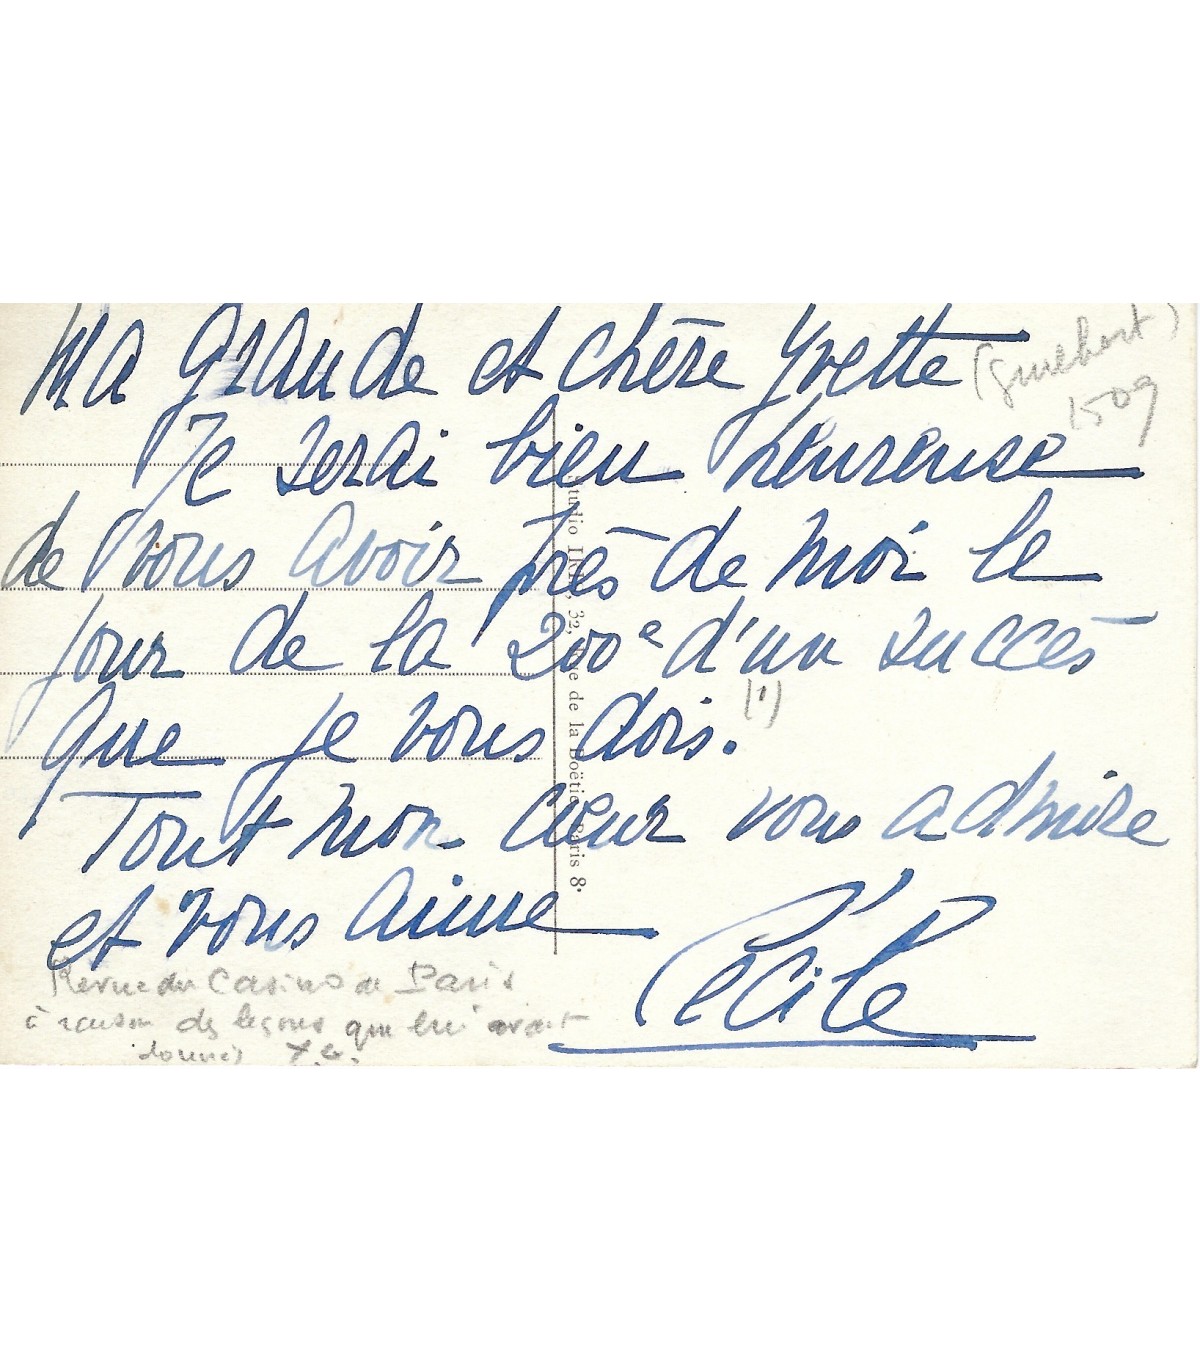 Ma grande et chère Yvette (Guilbert)
1509
Je serai bien heureuse
de vous avoir près de moi le
jour de la 200e d'un succès
que je vous dois. (1)
Tout mon cœur vous admire
et vous aime
Cécile
Revue du Casino de Paris
à raison des leçons que lui avait
données Y.G.
Studio 32, Rue de la Boëtie Paris 8e